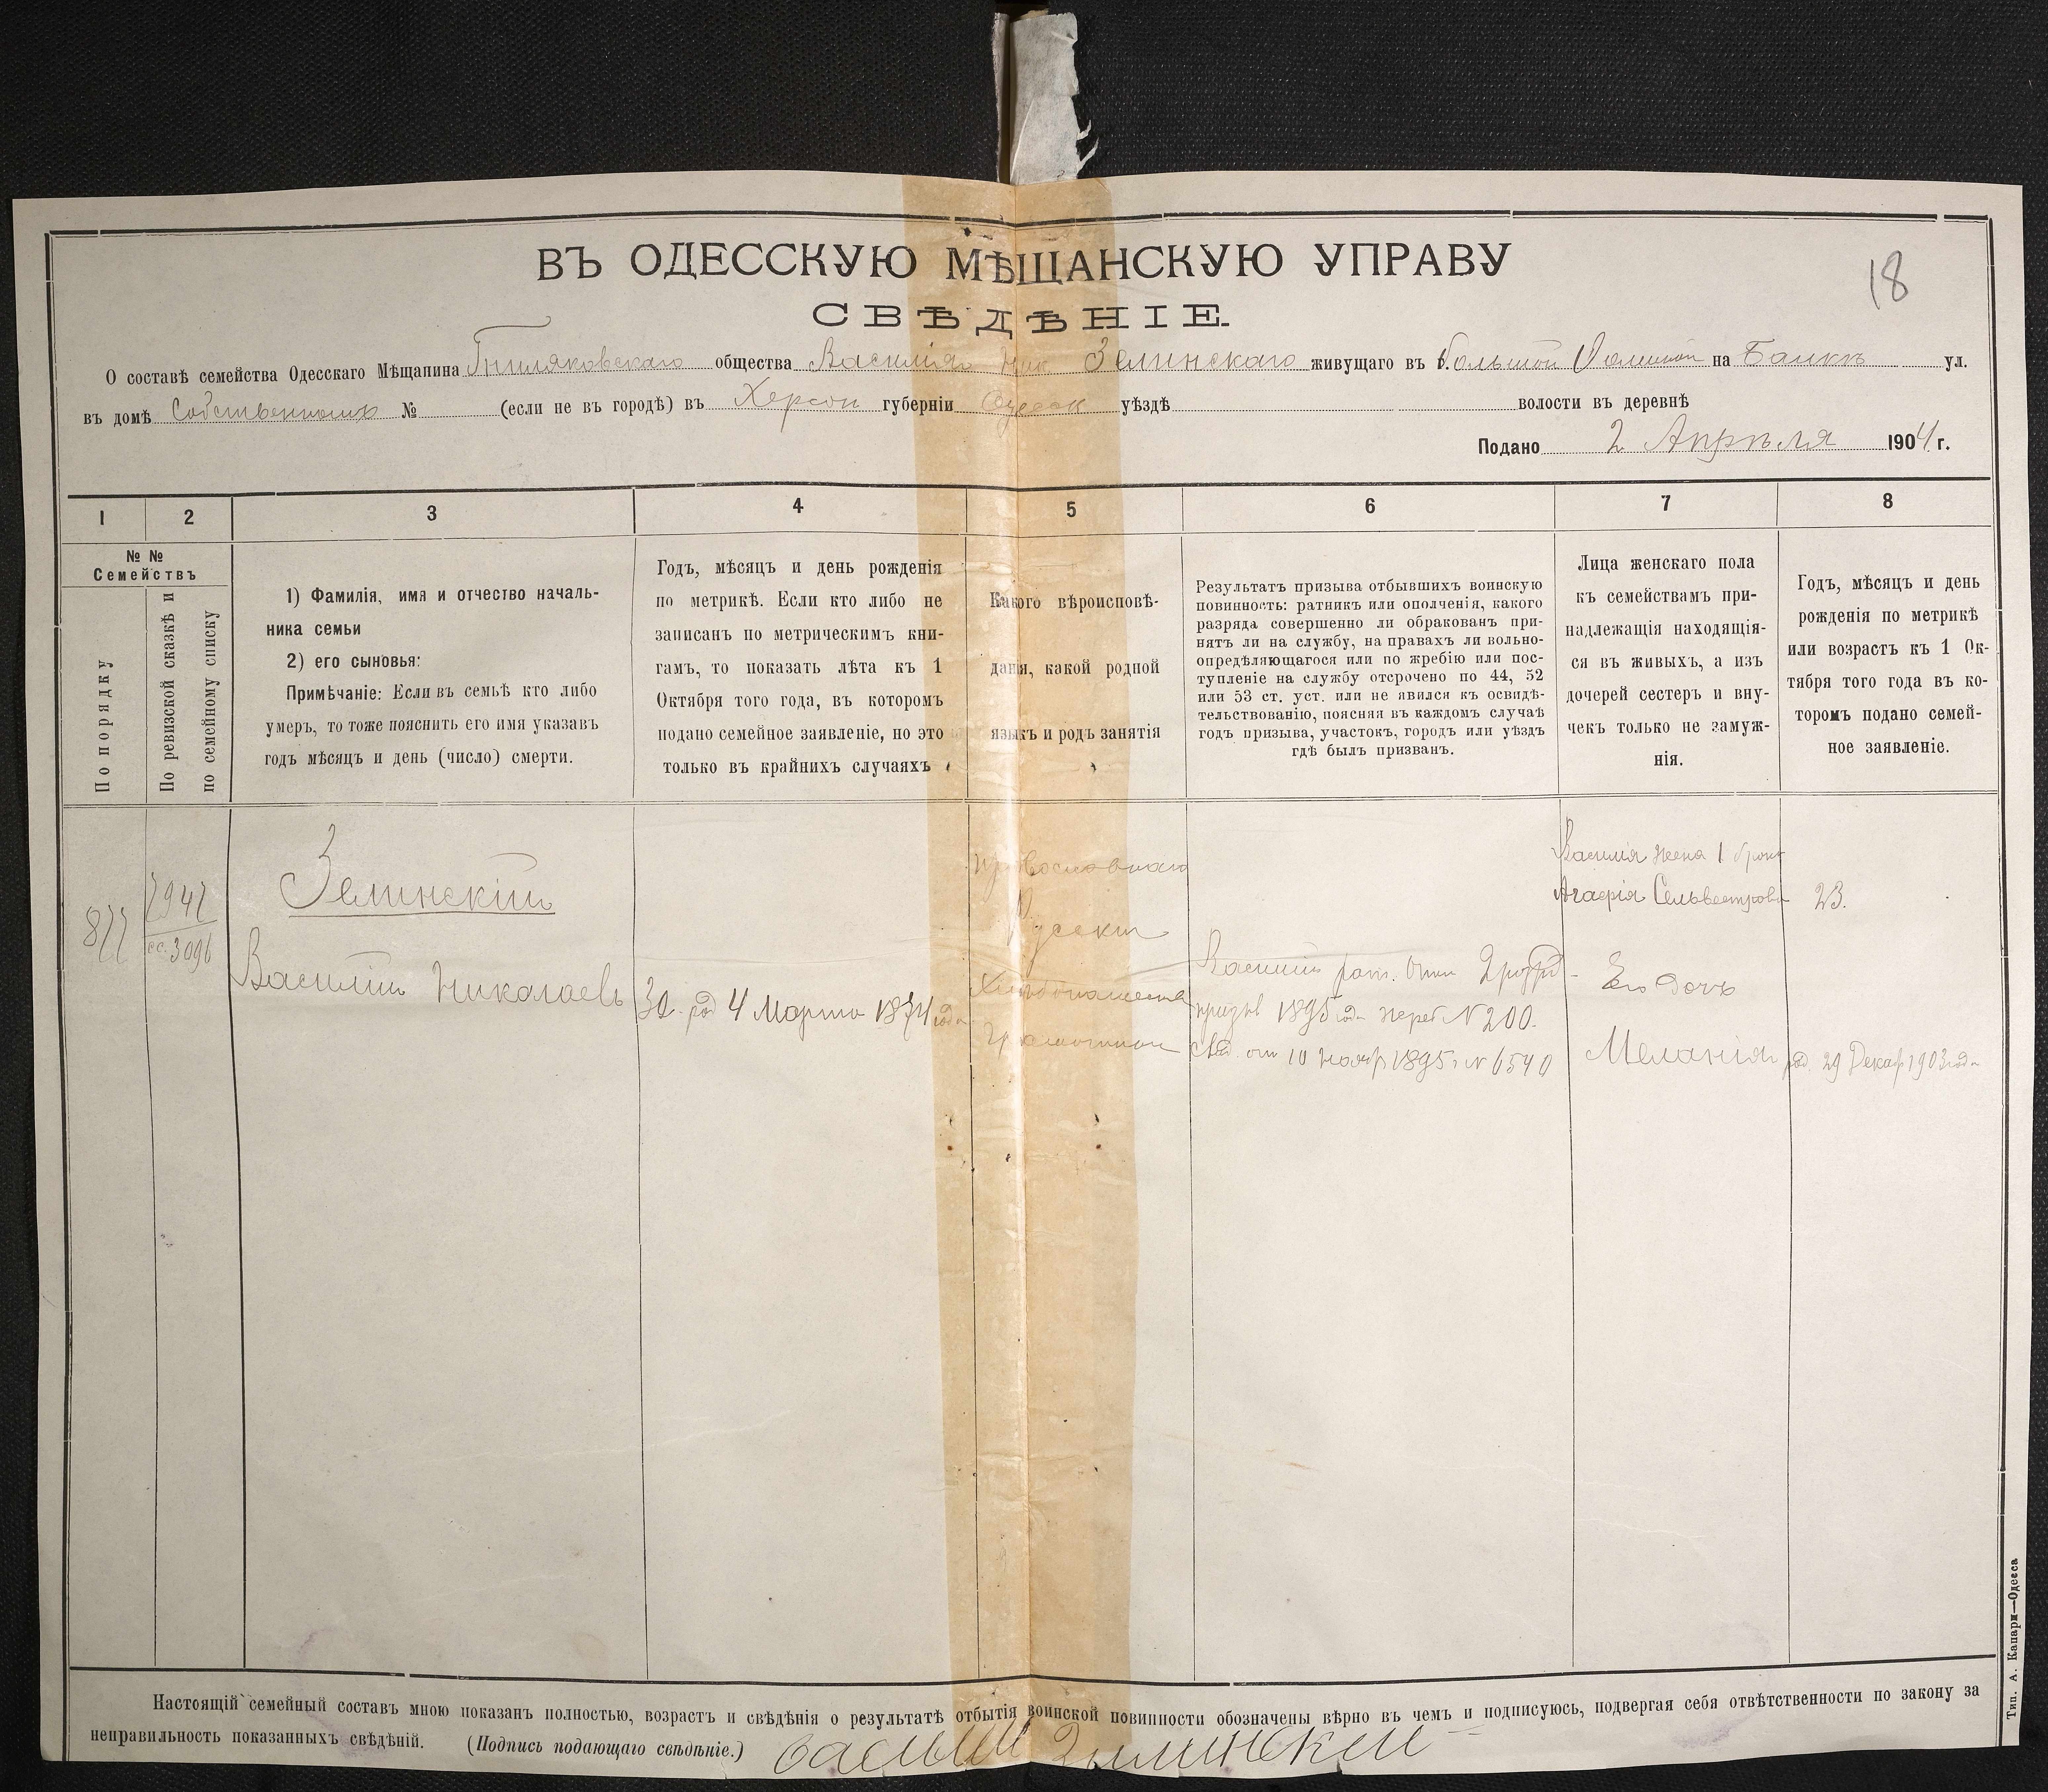 18
ВЪ ОДЕССКУЮ МѢЩАНСКУЮ УПРАВУ
СВѢДѢНІЕ.
О составѣ семейства Одесскаго Мѣщанина Гниляковскаго общества Василія Ник Зелинскаго живущаго въ на ул.
въ домѣ Собственномъ № (если не въ городѣ) въ Херсон губерніи Одесск уѣздѣ волости въ деревнѣ
Подано 2 Апрѣля 1904 г.
1 2 3 4 5 6 7 8
№ №
Семействъ
По порядку
По ревизской сказкѣ и
по семейному списку
1) Фамилія, имя и отчество началь-
ника семьи
2) его сыновья:
Примѣчаніе: Если въ семьѣ кто либо
умеръ, то тоже пояснить его имя указавъ
годъ мѣсяцъ и день (число) смерти.
Годъ, мѣсяцъ и день рожденія
по метрикѣ. Если кто либо не
записанъ по метрическимъ кни-
гамъ, то показать лѣта къ 1
Октября того года, въ которомъ
подано семейное заявленіе, но это
только въ крайнихъ случаяхъ
Какого вѣроисповѣ-
данія, какой родной
языкъ и родъ занятія
Результатъ призыва отбывшихъ воинскую
повинность: ратникъ или ополченія, какого
разряда совершенно ли обракованъ при-
нятъ ли на службу, на правахъ ли вольно-
опредѣляющагося или по жребію или пос-
тупленіе на службу отсрочено по 44, 52
или 53 ст. уст. или не явился къ освидѣ-
тельствованію, поясняя въ каждомъ случаѣ
годъ призыва, участокъ, городъ или уѣздъ
гдѣ былъ призванъ.
Лица женскаго пола
къ семействамъ при-
надлежащія находящія-
ся въ живыхъ, а изъ
дочерей сестеръ и вну-
чекъ только не замуж-
нія.
Годъ, мѣсяцъ и день
рожденія по метрикѣ
или возрастъ къ 1 Ок-
тября того года въ ко-
торомъ подано семей-
ное заявленіе.
877
2942
сс. 3096
Зелинскій
Василій Николаевъ
30. род 4 Марта 1874 года
Православнаго
Русскій
Хлѣбопашество
Грамотный
Василій рат. Опол 2 разр
призыв 1895 года жреб № 200.
Свид. от 10 Нояб 1895 г № 6540
Василія жена 1 брака
Агафія Сельвестрова
23.
Его дочь
Меланія
род. 29 Декаб 1903 года
Настоящій семейный составъ мною показанъ полностью, возрастъ и свѣдѣнія о результатѣ отбытія воинской повинности обозначены вѣрно въ чемъ и подписуюсь, подвергая себя отвѣтственности по закону за
неправильность показанныхъ свѣдѣній. (Подпись подающаго свѣдѣніе.) Василий Зилинский
Тип. А. Капари—Одесса